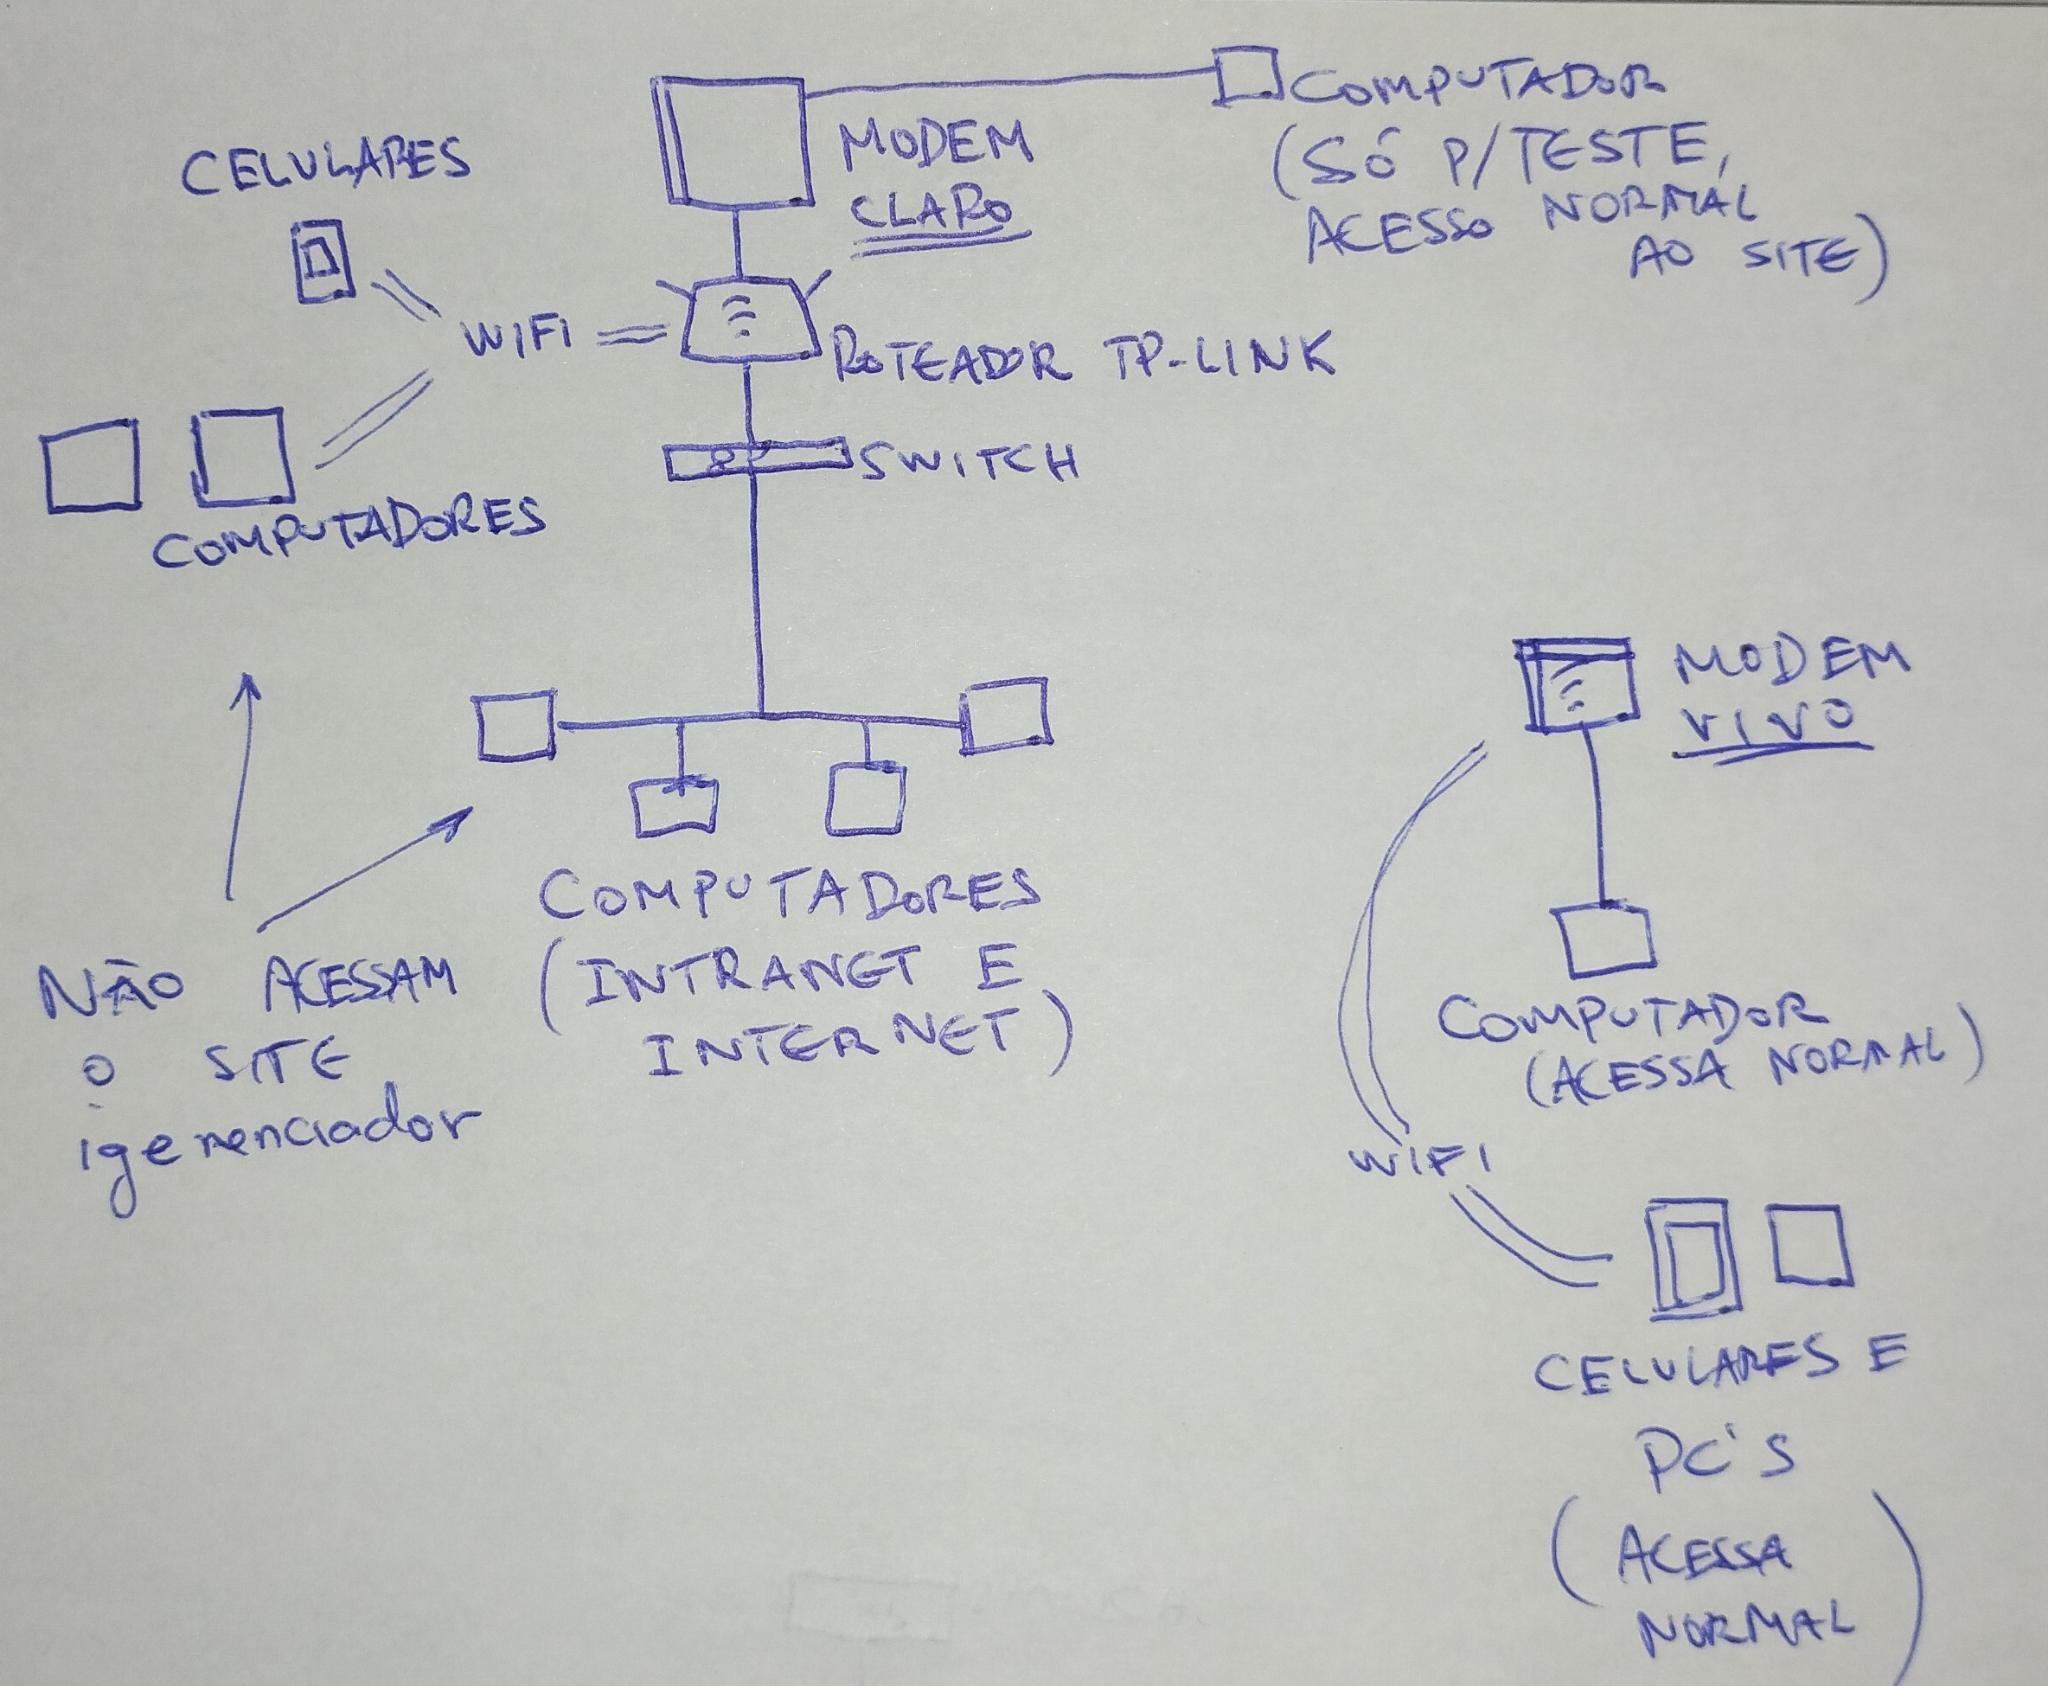 COMPUTADOR
(SÓ P/TESTE,
ACESSO NORMAL
AO SITE)
MODEM
CLARO
CELULARES
WIFI
ROTEADOR TP-LINK
SWITCH
COMPUTADORES
COMPUTADORES
(INTRANET E
INTERNET)
NÃO ACESSAM
O SITE
igerenciador
MODEM
VIVO
COMPUTADOR
(ACESSA NORMAL)
WIFI
CELULARES E
PC'S
(ACESSA
NORMAL)